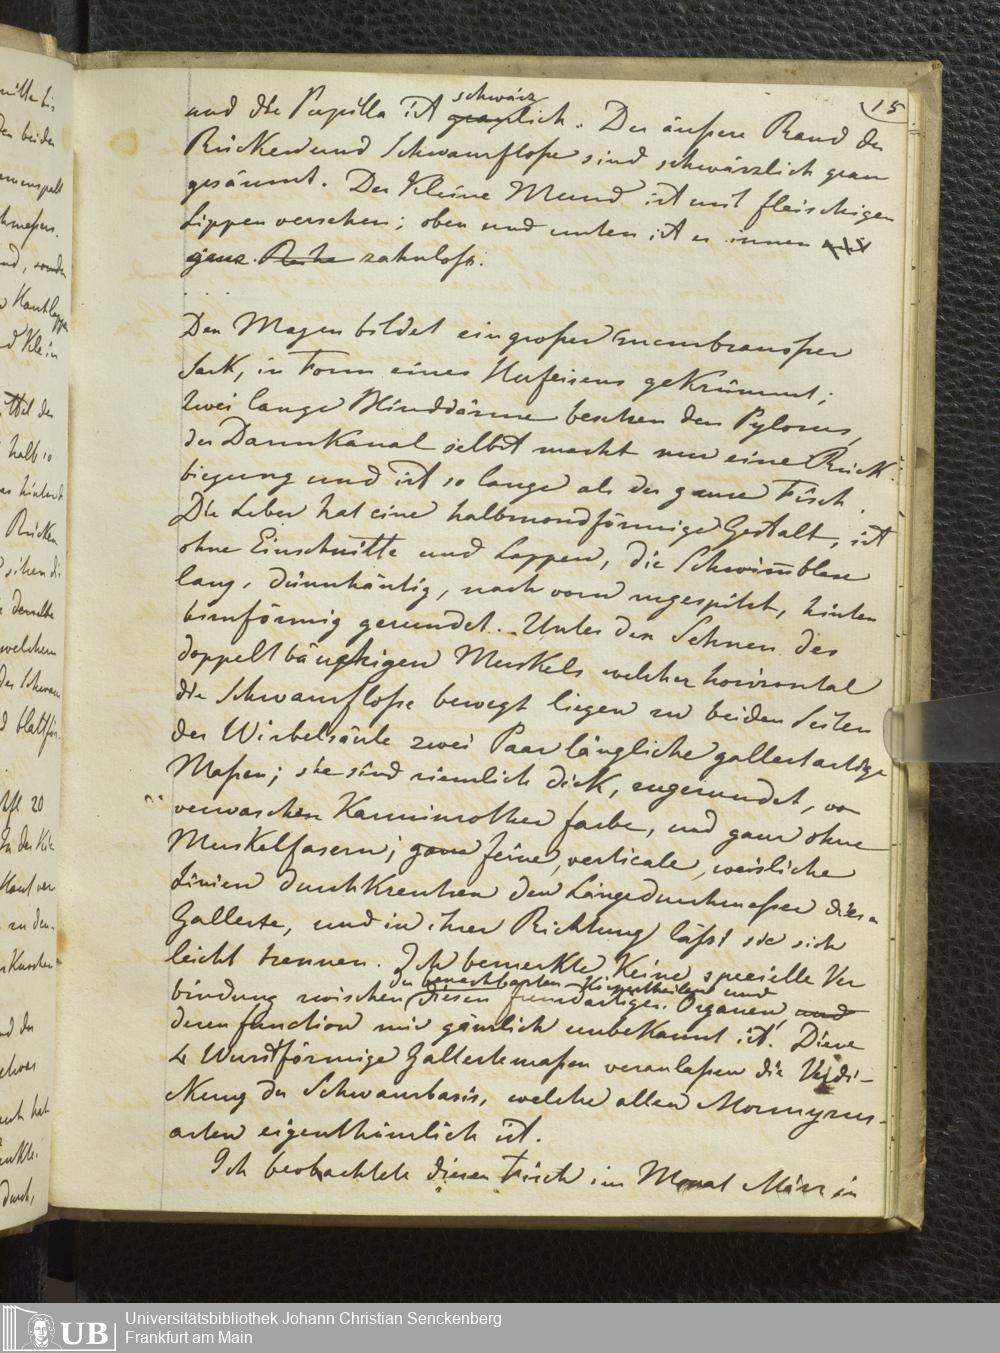 15
und die Pupilla ist schwärzlich. Der äußere Rand der
Rücken und Schwanzfloße sind schwärzlich grau
gesäumt. Der Kleine Mund ist mit fleischigen
Lippen versehen; oben und unten ist er innen
ganz zahnloß.
Den Magen bildet ein großer membranößer
Sack, in Form eines Hufeisens geKrümmt;
Zwei lange Blinddärme besetzen den Pylorus,
der DarmKanal selbst macht nur eine Rück
biegung und ist so lange als der ganze Fisch.
Die Leber hat eine halbmondförmige Gestalt, ist
ohne Einschnitte und Lappen, die Schwim̅blase
lang, dünnhäutig, nach vorn zugespitzt, hinten
birnförmig gerundet. Unter den Sehnen des
doppeltbäuchigen Muskels welcher horizontal
die Schwanzfloße bewegt liegen zu beiden Seiten
der Wirbelsäule zwei Paar längliche gallertartige
Maßen; sie sind ziemlich dicK, zugerundet, von
verwaschen Karminrother farbe, und ganz ohne
Muskelfasern; ganz feine, verticale, weisliche
Linien durchKreutzen den Längedurchmeßer dieser
Gallerte, und in ihrer Richtung läßt sie sich
leicht trennen. Ich bemerkte Keine specielle Ver
der benachbarten Körpertheilen und
bindung zwischen diesen fremdartigen Organen, und
deren function mir gänzlich unbeKannt ist. Diese
4 Wurstförmige Gallertemaßen veranlaßen die Verdi-
Kung der Schwanzbasis, welche allen Mormyrus-
arten eigenthümlich ist.
Ich beobachtete diesen Fisch im Monat März in
Universitätsbibliothek Johann Christian Senckenberg
Frankfurt am Main
UB